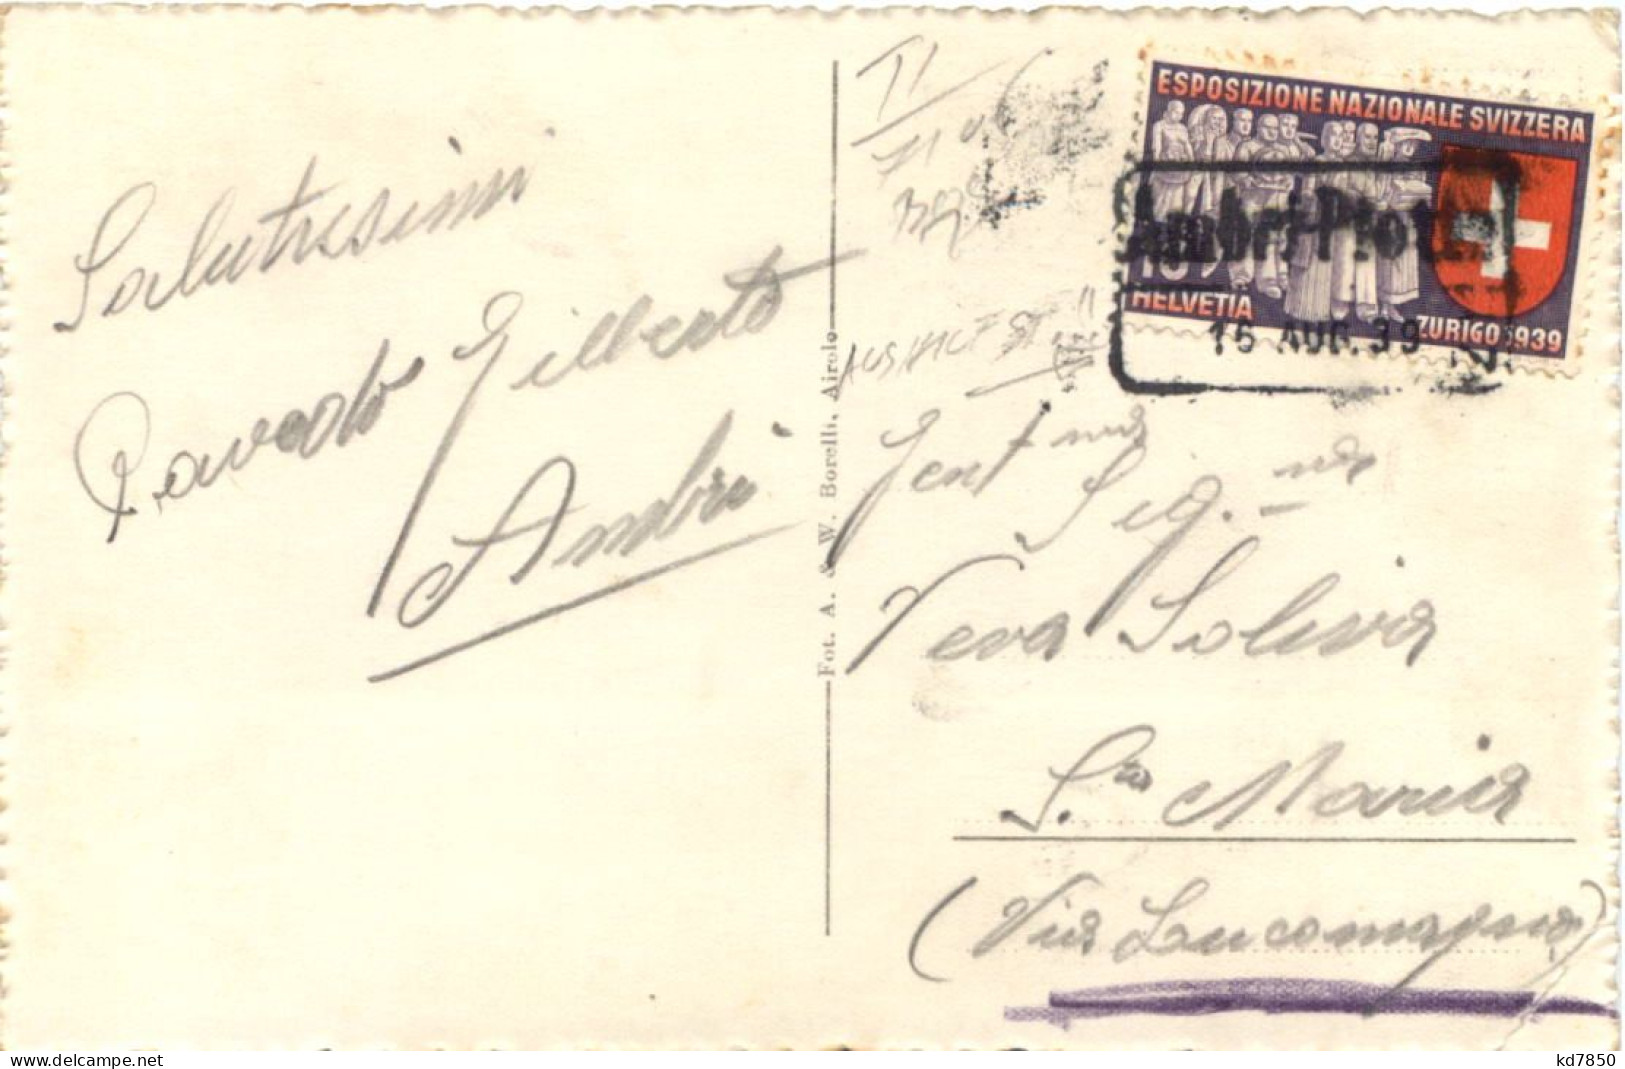 Salutissimi
Gilberto
Ambrì
Fot. A. & W. Borelli, Airolo
TI
ESPOSIZIONE NAZIONALE SVIZZERA
HELVETIA
ZURIGO 1939
Ambri-Piotta
16 AUG. 39
Gent.
Sig.na
Soliva
S.ta Maria
(Via Lucomagno)
delcampe.net
kd7850